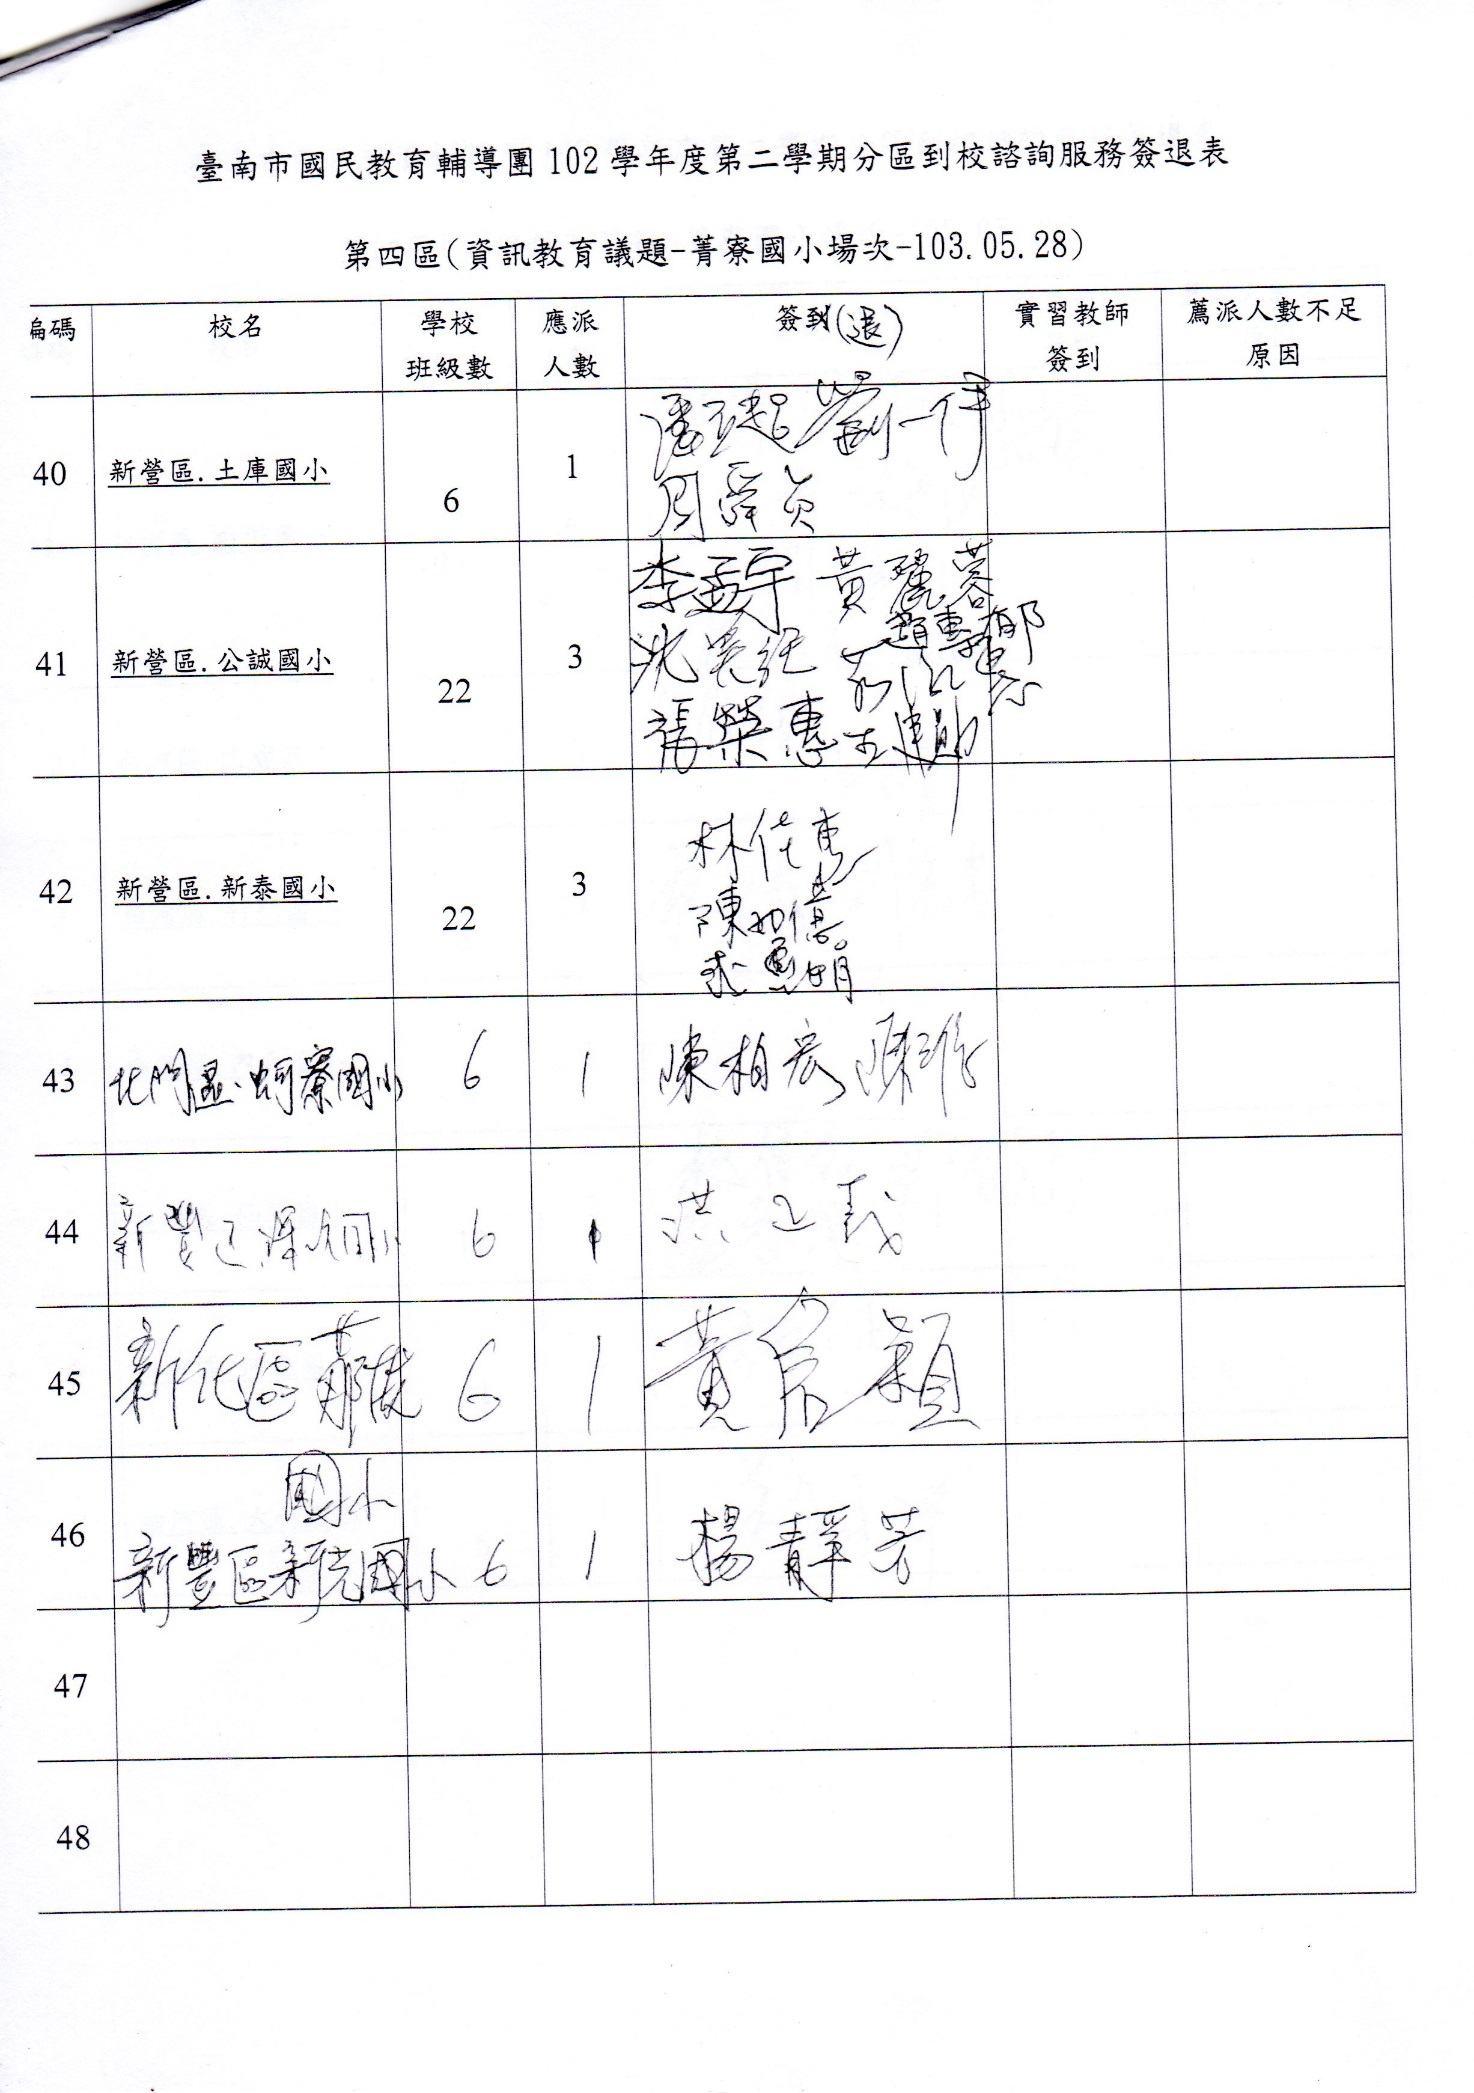 臺南市國民教育輔導團102學年度第二學期分區到校諮詢服務簽退表
第四區(資訊教育議題-菁寮國小場次-103.05.28)
編碼 校名 學校班級數 應派人數 簽到(退) 實習教師簽到 薦派人數不足原因
40 新營區.土庫國小 6 1
周舜貞
41 新營區.公誠國小 22 3 李孟宇 黃麗蓉
張榮惠
42 新營區.新泰國小 22 3 林佳惠
43 北門區.蚵寮國小 6 1 陳柏宏
44 6 1 洪正義
45 新化區那拔 6 1 黃名穎
國小
46 新豐區新光國小 6 1 楊靜芳
47
48